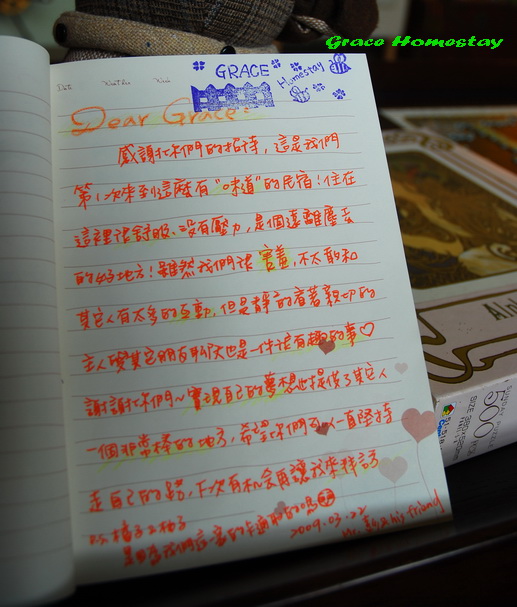 Grace Homestay
GRACE
Homestay
Dear Grace:
感謝你們的招待，這是我們
第1次來到這麼有"味道"的民宿！住在
這裡很舒服、沒有壓力，是個遠離塵囂
的好地方！雖然我們很害羞，不太敢和
其它人有太多的互動，但是靜靜的看著親切的
主人與其它朋友聊天也是一件很有趣的事♡
謝謝你們~實現自己的夢想也提供了其它人
一個非常棒的地方，希望你們可以一直堅持
走自己的路，下次有機會再讓我來拜訪
P.S. 橘子&柚子
2009.03.22
Mr. & his friend
500